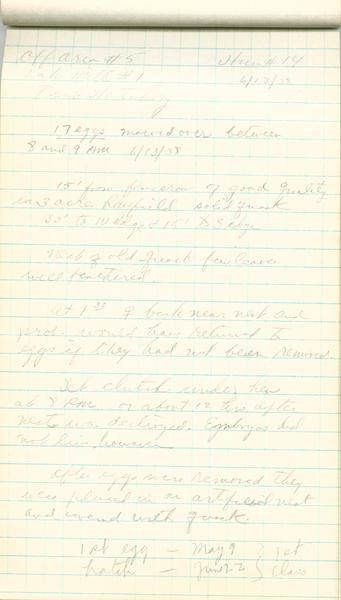 Off Area #5 Hen #14
#1 6/13/38
17 eggs mowed over between
8 and 9 AM 6/13/38
15' from fencerow of good quality
in 3 acre hayfield solid quack
30' to W edge & 15' to S edge
of old quack few leaves
well feathered.
At 1 30 ♀ back near nest and
prob. would have returned to
eggs if they had not been removed
Set clutch under hen
at 8 PM or about 12 hrs after
nest was destroyed. Embryos did
not live, however
After eggs were removed they
were placed in an artificial nest
and covered with quack.
1st egg — May 9 } 1st
hatch — June 22 } class